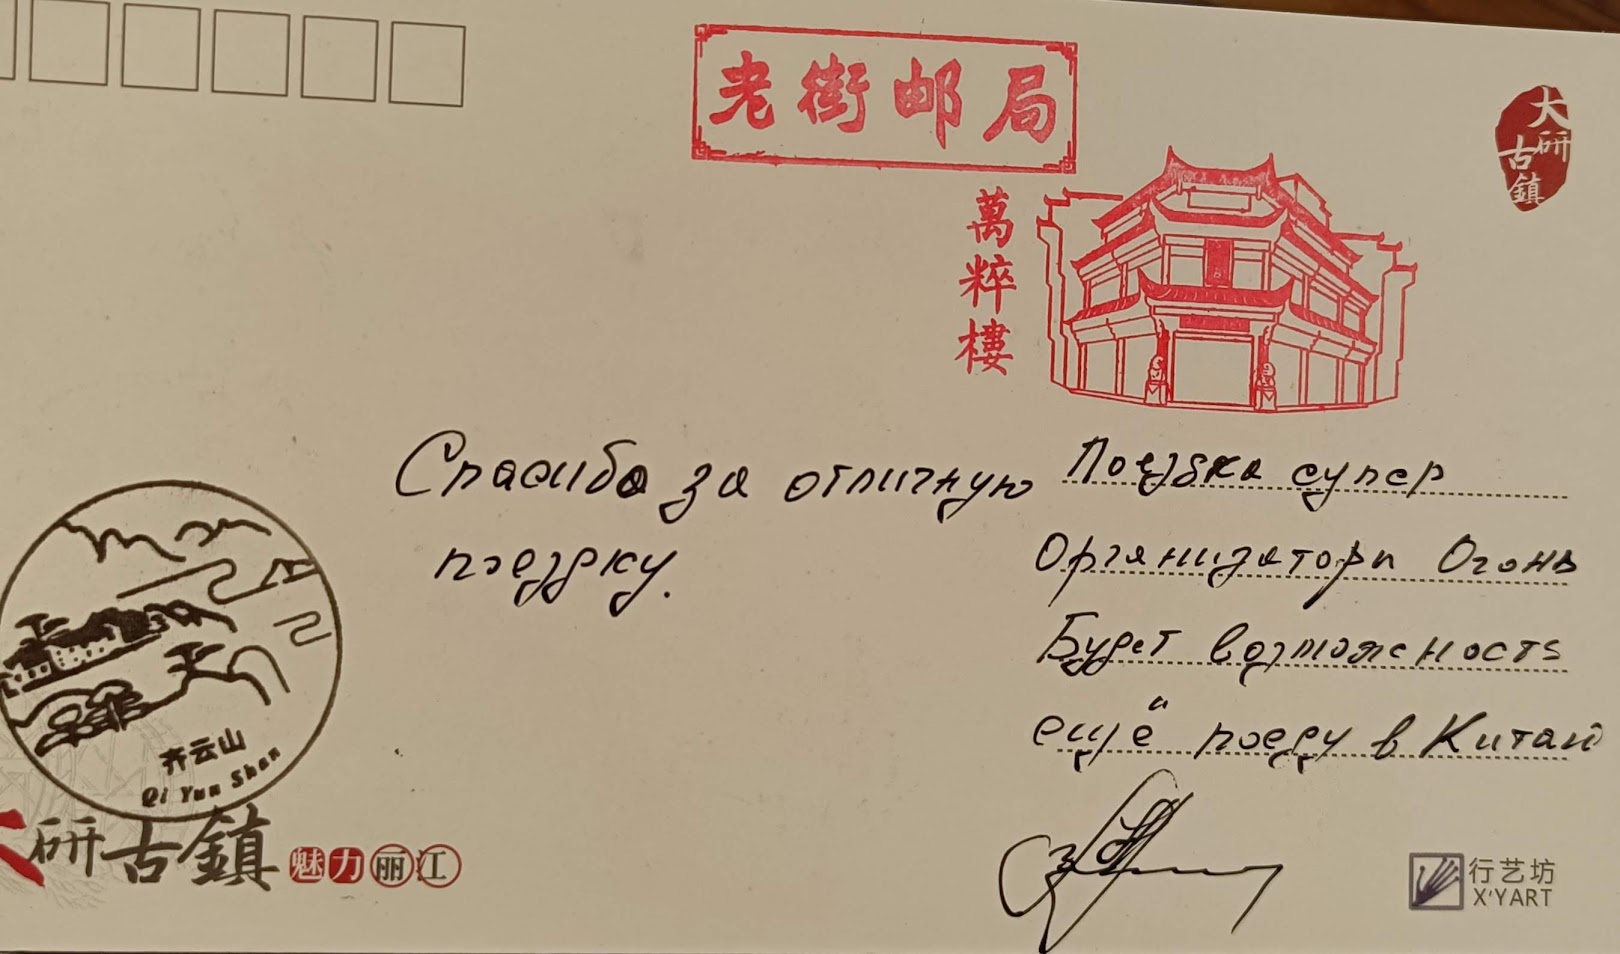 老街邮局
大研古鎮
萬粹樓
Спасибо за отличную
поездку.
Поездка супер
Организаторы Огонь
Будет возможность
ещё поеду в Китай
齐云山
Qi Yun Shan
大研古鎮 魅力丽江
行艺坊
X'YART